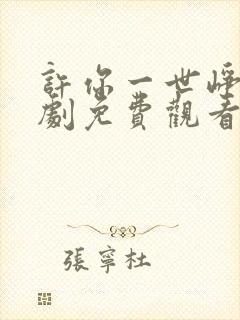 許你一世崢
劇免費觀看
張寧杜